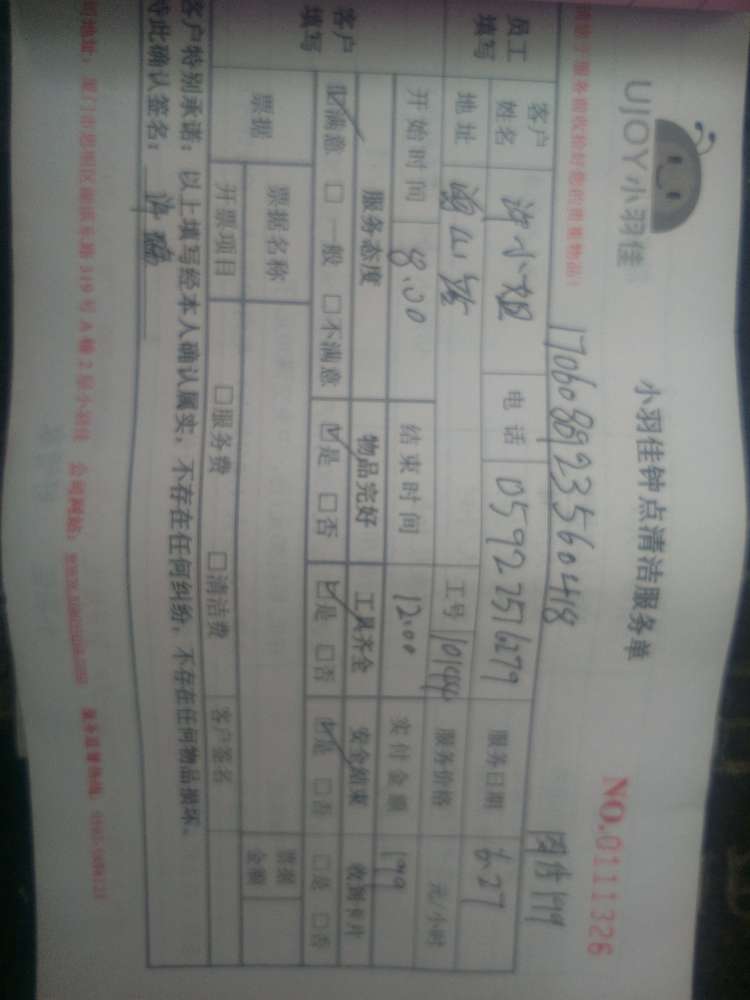 UJOY小羽佳
小羽佳钟点清洁服务单
NO.0111326
请于服务前收拾好您的贵重物品!
170608923560418
员工填写
客户姓名 许小姐 电话 05922516279 服务日期 6.27
地址 工号 服务价格 元/小时
开始时间 8:00 结束时间 12:00 实付金额 199
客户填写
服务态度 物品完好 工具齐全 安全结束 收到卡片
☑满意 □一般 □不满意 ☑是 □否 ☑是 □否 ☑是 □否 □是 □否
票据 票据名称 票据金额
开票项目 □服务费 □清洁费 客户签名
客户特别承诺:以上填写经本人确认属实,不存在任何纠纷,不存在任何物品损坏。
特此确认签名:许
厦门市思明区湖滨东路319号A幢2层小羽佳 公司网站: